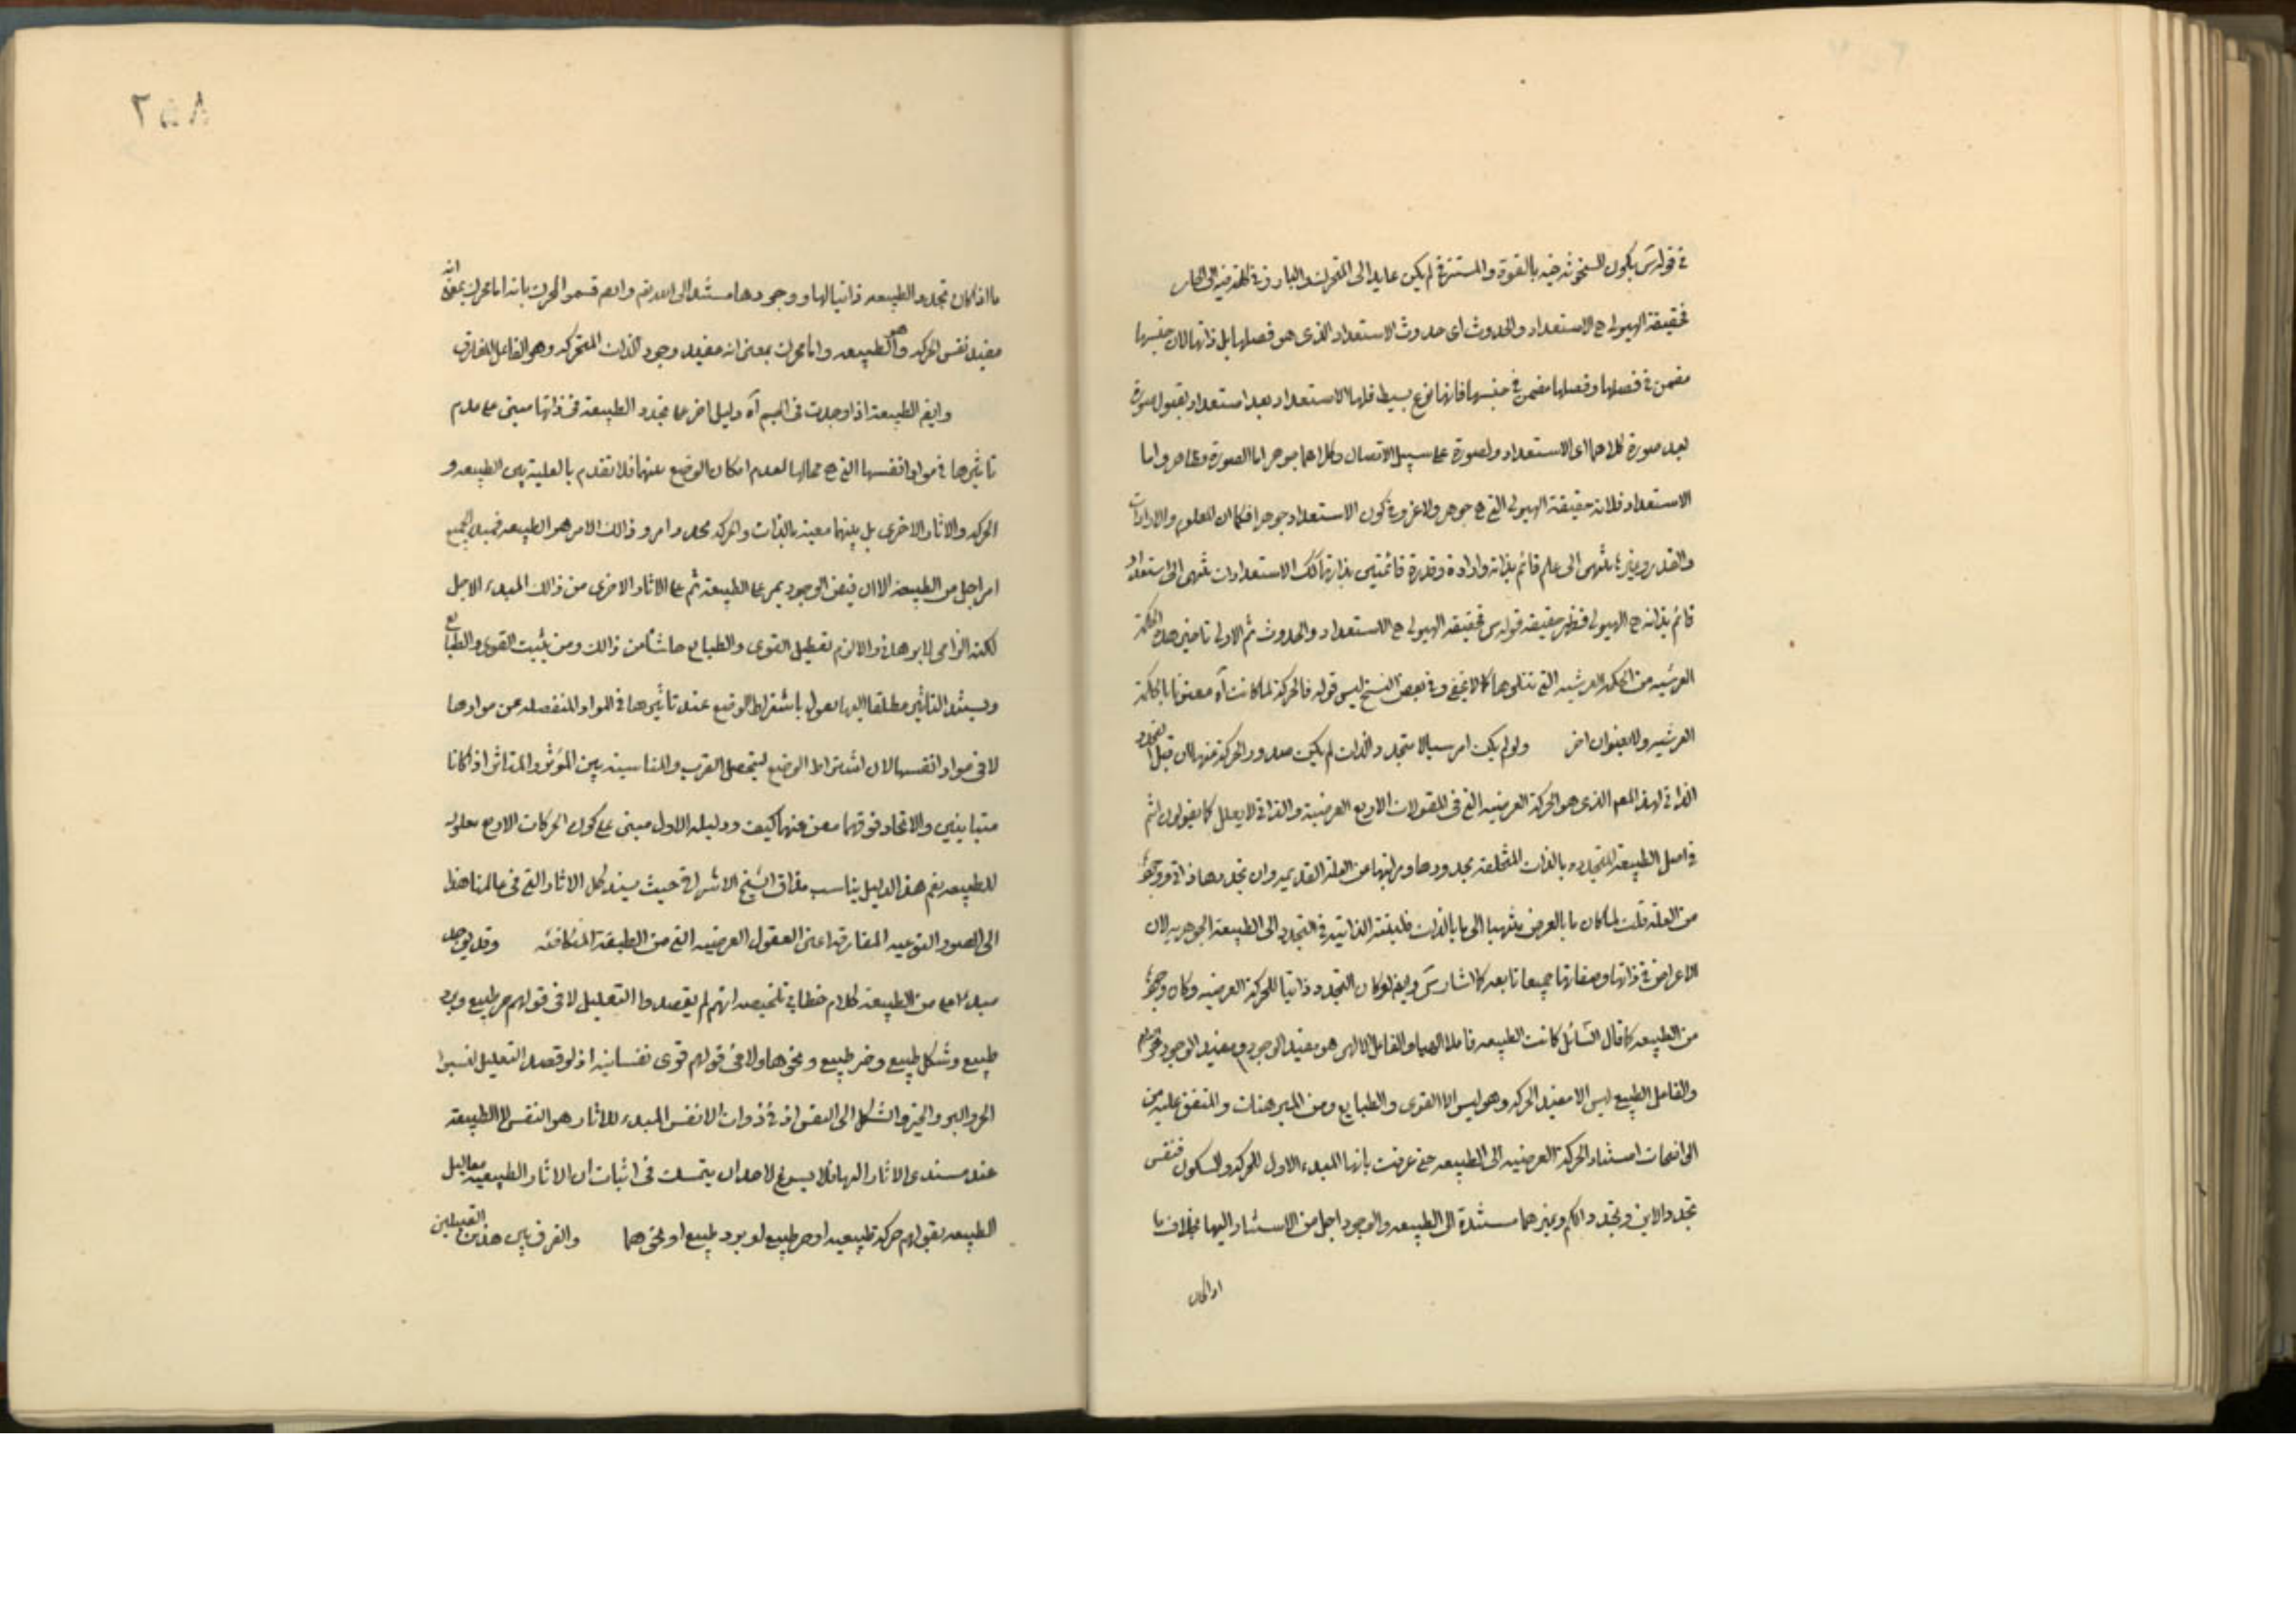 في قوله س يكون السخونة فيه بالقوة والمستتر في لم يكن عايدا الى المتحرك والبارد في الحار
فحقيقة الهيولى هي الاستعداد والحدوث اى حدوث الاستعداد الذى هو فصلها بل ذاتها لان جنسها
مضمن في فصلها وفصلها مضمن في جنسها فانها نوع بسيط فلها الاستعداد بعد استعداد لقبول صورة
بعد صورة كلاهما اى الاستعداد والصورة على سبيل الاتصال وكلاهما جوهر اما الصورة فظاهر واما
الاستعداد فلانه حقيقة الهيولى التي هي جوهر ولا غرو في كون الاستعداد جوهرا فكما ان العلوم والارادات
والقدر وغيرها ينتهى الى علم قائم بذاته وارادة وقدرة قائمتين بذاتهما كك الاستعدادات تنتهى الى استعداد
قائم بذاته هي الهيولى فظهر حقيقة قوله س فحقيقة الهيولى هي الاستعداد والحدوث ثم الاولى تاخير هذه الحكمة
العرشيه من الحكمة العرشيه التي تتلوها كما لا يخفى وفي بعض النسخ ليس قوله فالحركة لما كانت آه معنونا بالحكمة
العرشيه ولا بعنوان اخر ولو لم يكن امر سيالا متجدد الذات لم يكن صدور الحركة منها ان قبل التجدد
الذاتى لهذا المعه الذى هو الحركة العرضيه التي في المقولات الاربع العرضية والذاتى لا يعلل كما يقولون انتم
في اصل الطبيعة المتجدده بالذات المتخلفة بحدودها ومراتبها عن العلة القديمه وان تجددها ذاتى ووجودها
من العلة قلت لما كان ما بالعرض ينتهى الى ما بالذات فلينته الذاتية في التجدد الى الطبيعة الجوهريه لان
الاعراض في ذاتها وصفاتها جميعا تابعه كما اشار س وايض لو كان التجدد ذاتيا للحركة العرضيه وكان وجودها
من الطبيعه كما قال السائل كانت الطبيعه فاعلا الهيا والفاعل الالهى هو مفيد الوجود ومفيد الوجود هو
والفاعل الطبيعى ليس الا مفيد الحركه وهو ليس الا القوى والطبايع ومن المبرهنات والمتفق عليه من
الواضحات استناد الحركة العرضيه الى الطبيعه حتى عرفت بانها المبدء الاول للحركة والسكون فنفس
تجدد الاين وتجدد الكم وغيرهما مستندة الى الطبيعه والوجود اجل من الاستناد اليها بخلاف ما
اذا كان
٢٥٨
ما اذا كان تجدد الطبيعه ذاتيا لها ووجودها مستندا الى الله تع وانهم قسموا المحرك بانه اما محرك بمعنى انه
مفيد نفس الحركه وهو الطبيعه واما محرك بمعنى انه مفيد وجود الذات المتحركه وهو الفاعل المفارق
وايض الطبيعة اذا وجدت في الجسم آه دليل اخر على تجدد الطبيعة في ذاتها مبنى على عدم
تاثيرها في مواد انفسها التي هي محالها لعدم امكان الوضع بينهما فلا تقدم بالعلية بين الطبيعه و
الحركه والاثار الاخرى بل بينهما معية بالذات والحركه تجدد امر وذالك الامر هو الطبيعه فمبدء الجميع
امر اجل من الطبيعه الا ان فيض الوجود يمر على الطبيعة ثم على الاثار الاخرى من ذالك المبدء الاجل
لكنه الزامى لا برهانى والا لزم تعطيل القوى والطبايع حاشا من ذالك ومن يثبت القوى والطبايع
ويسند التاثير مطلقا اليها يقول باشتراط الوضع عند تاثيرها في المواد المنفصله عن موادها
لا في مواد انفسها لان اشتراط الوضع ليتحصل القرب والمناسبة بين المؤثر والمتاثر اذا كانا
متباينين والاتحاد فوقهما مغن عنهما كيف ودليله الاول مبنى على كون الحركات الاربع معلوله
للطبيعه نعم هذا الدليل يناسب مذاق الشيخ الاشراقى حيث يسند كل الاثار التي في عالمنا هذا
الى الصور النوعيه المفارقه اعنى العقول العرضيه التي من الطبقة المتكافئه وقد يوجد
مبدء اعلى من الطبيعة كلام خطابى تلخيصه انهم لم يقصدوا التعليل لا في قولهم حر طبيع وبرد
طبيع وشكل طبيع وحيز طبيع ونحوها ولا في قولهم قوى نفسانيه اذ لو قصد التعليل لنسبوا
الحر والبرد والحيز والشكل الى النفس اذ في ذوات الانفس المبدء للاثار هو النفس لا الطبيعة
عند مسندى الاثار اليها فلا يسوغ لاحد ان يتمسك في اثبات ان الاثار الطبيعيه معاليل
الطبيعه بقولهم حركة طبيعيه او حر طبيع او برد طبيع او نحوهما والفرق بين هذين القبيلين